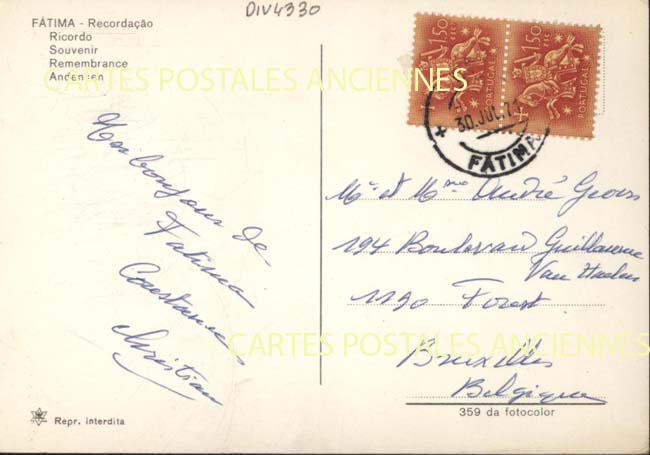 DIV4330
FÁTIMA - Recordação
Ricordo
Souvenir
Remembrance
Andenken
CARTES POSTALES ANCIENNES
1$50
PORTUGAL
1$50
PORTUGAL
30.JUL.71
FÁTIMA
bonjour de
Fatima
Constance
Christian
Mr et Mme André
194 Boulevard Guillaume
Van Haelen
1190 Forest
CARTES POSTALES ANCIENNES
Bruxelles
Belgique
359 da fotocolor
Repr. interdita